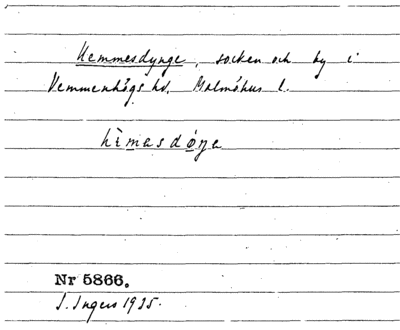 Hemmesdynge, socken och by i
Vemmenhögs hd. Malmöhus l.
hìmasdøŋa
Nr 5866.
I. Ingers 1935.